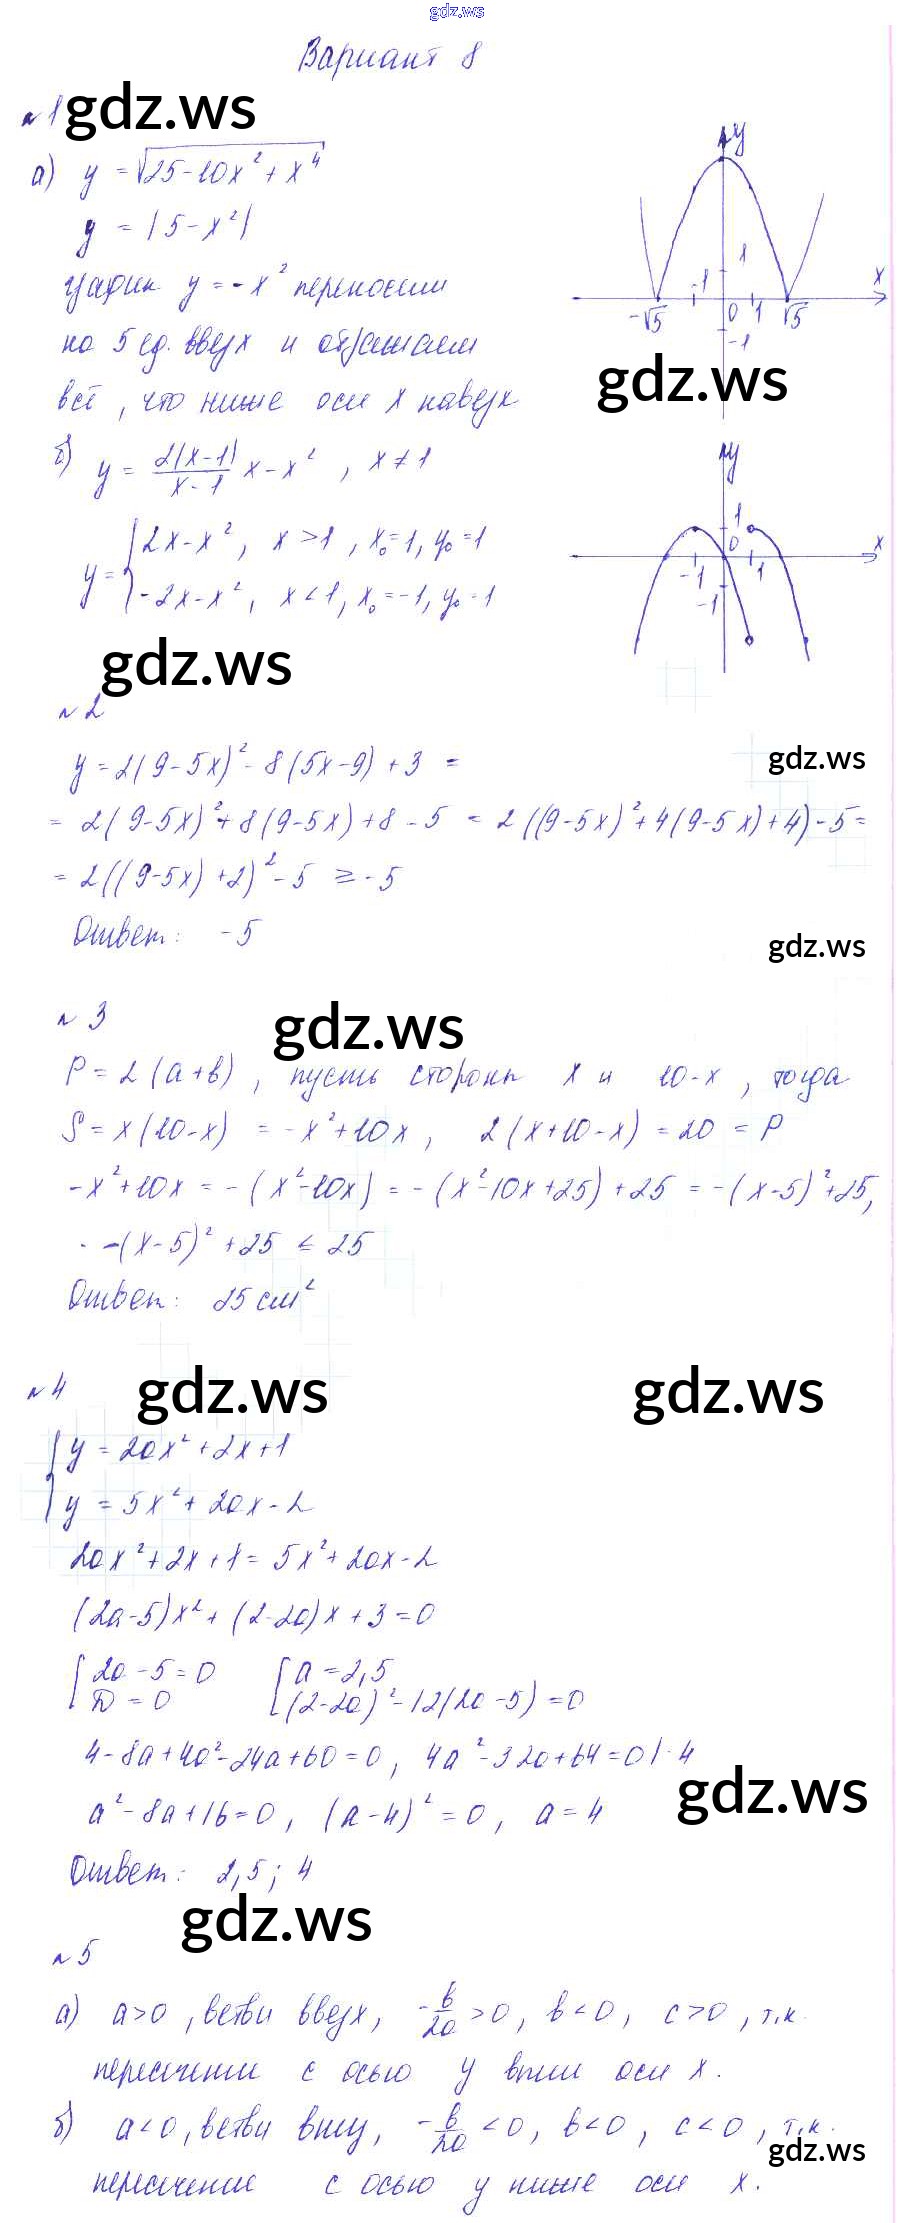 gdz.ws
Вариант 8
№1 gdz.ws
а) y = √(25-10x²+x⁴)
y = |5-x²|
график y = -x² переносим
на 5 ед. вверх и отражаем
всё, что ниже оси x наверх
y
1
-1
x
-√5
0
1
√5
-1
gdz.ws
б) y = 2|x-1|/(x-1) x-x², x≠1
y = { 2x-x², x>1, x₀=1, y₀=1
-2x-x², x<1, x₀=-1, y₀=1
y
1
0
x
-1
1
-1
gdz.ws
№2
y = 2(9-5x)² - 8(5x-9) + 3 =
= 2(9-5x)² + 8(9-5x) + 8 - 5 = 2((9-5x)² + 4(9-5x) + 4) - 5 =
= 2((9-5x) + 2)² - 5 ≥ -5
Ответ: -5
gdz.ws
gdz.ws
№3
gdz.ws
P = 2(a+b), пусть стороны x и 10-x, тогда
S = x(10-x) = -x²+10x, 2(x+10-x) = 20 = P
-x²+10x = -(x²-10x) = -(x²-10x+25)+25 = -(x-5)²+25,
-(x-5)²+25 ≤ 25
Ответ: 25 см²
№4
gdz.ws
gdz.ws
{ y = 2ax²+2x+1
y = 5x²+2ax-2
2ax²+2x+1 = 5x²+2ax-2
(2a-5)x²+(2-2a)x+3=0
[ 2a-5=0 [ a=2,5
D=0 (2-2a)²-12(2a-5)=0
4-8a+4a²-24a+60=0, 4a²-32a+64=0 |:4
gdz.ws
a²-8a+16=0, (a-4)²=0, a=4
Ответ: 2,5; 4
gdz.ws
№5
а) a>0, ветви вверх, -b/2a>0, b<0, c>0, т.к.
пересечении с осью y выше оси x.
б) a<0, ветви вниз, -b/2a<0, b<0, c<0, т.к.
gdz.ws
пересечение с осью y ниже оси x.